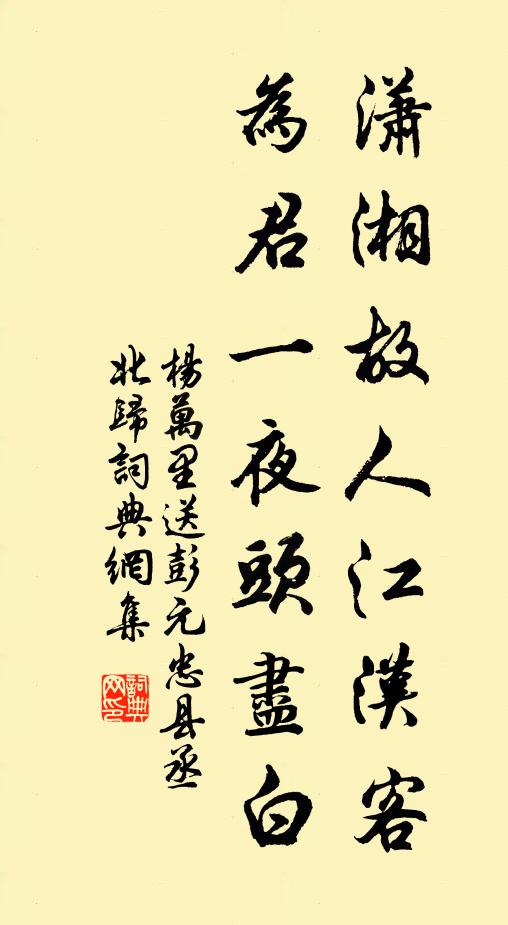 瀟湘故人江漢客
為君一夜頭盡白
楊萬里送彭元忠县丞
北歸詞典網集
詞典
网印